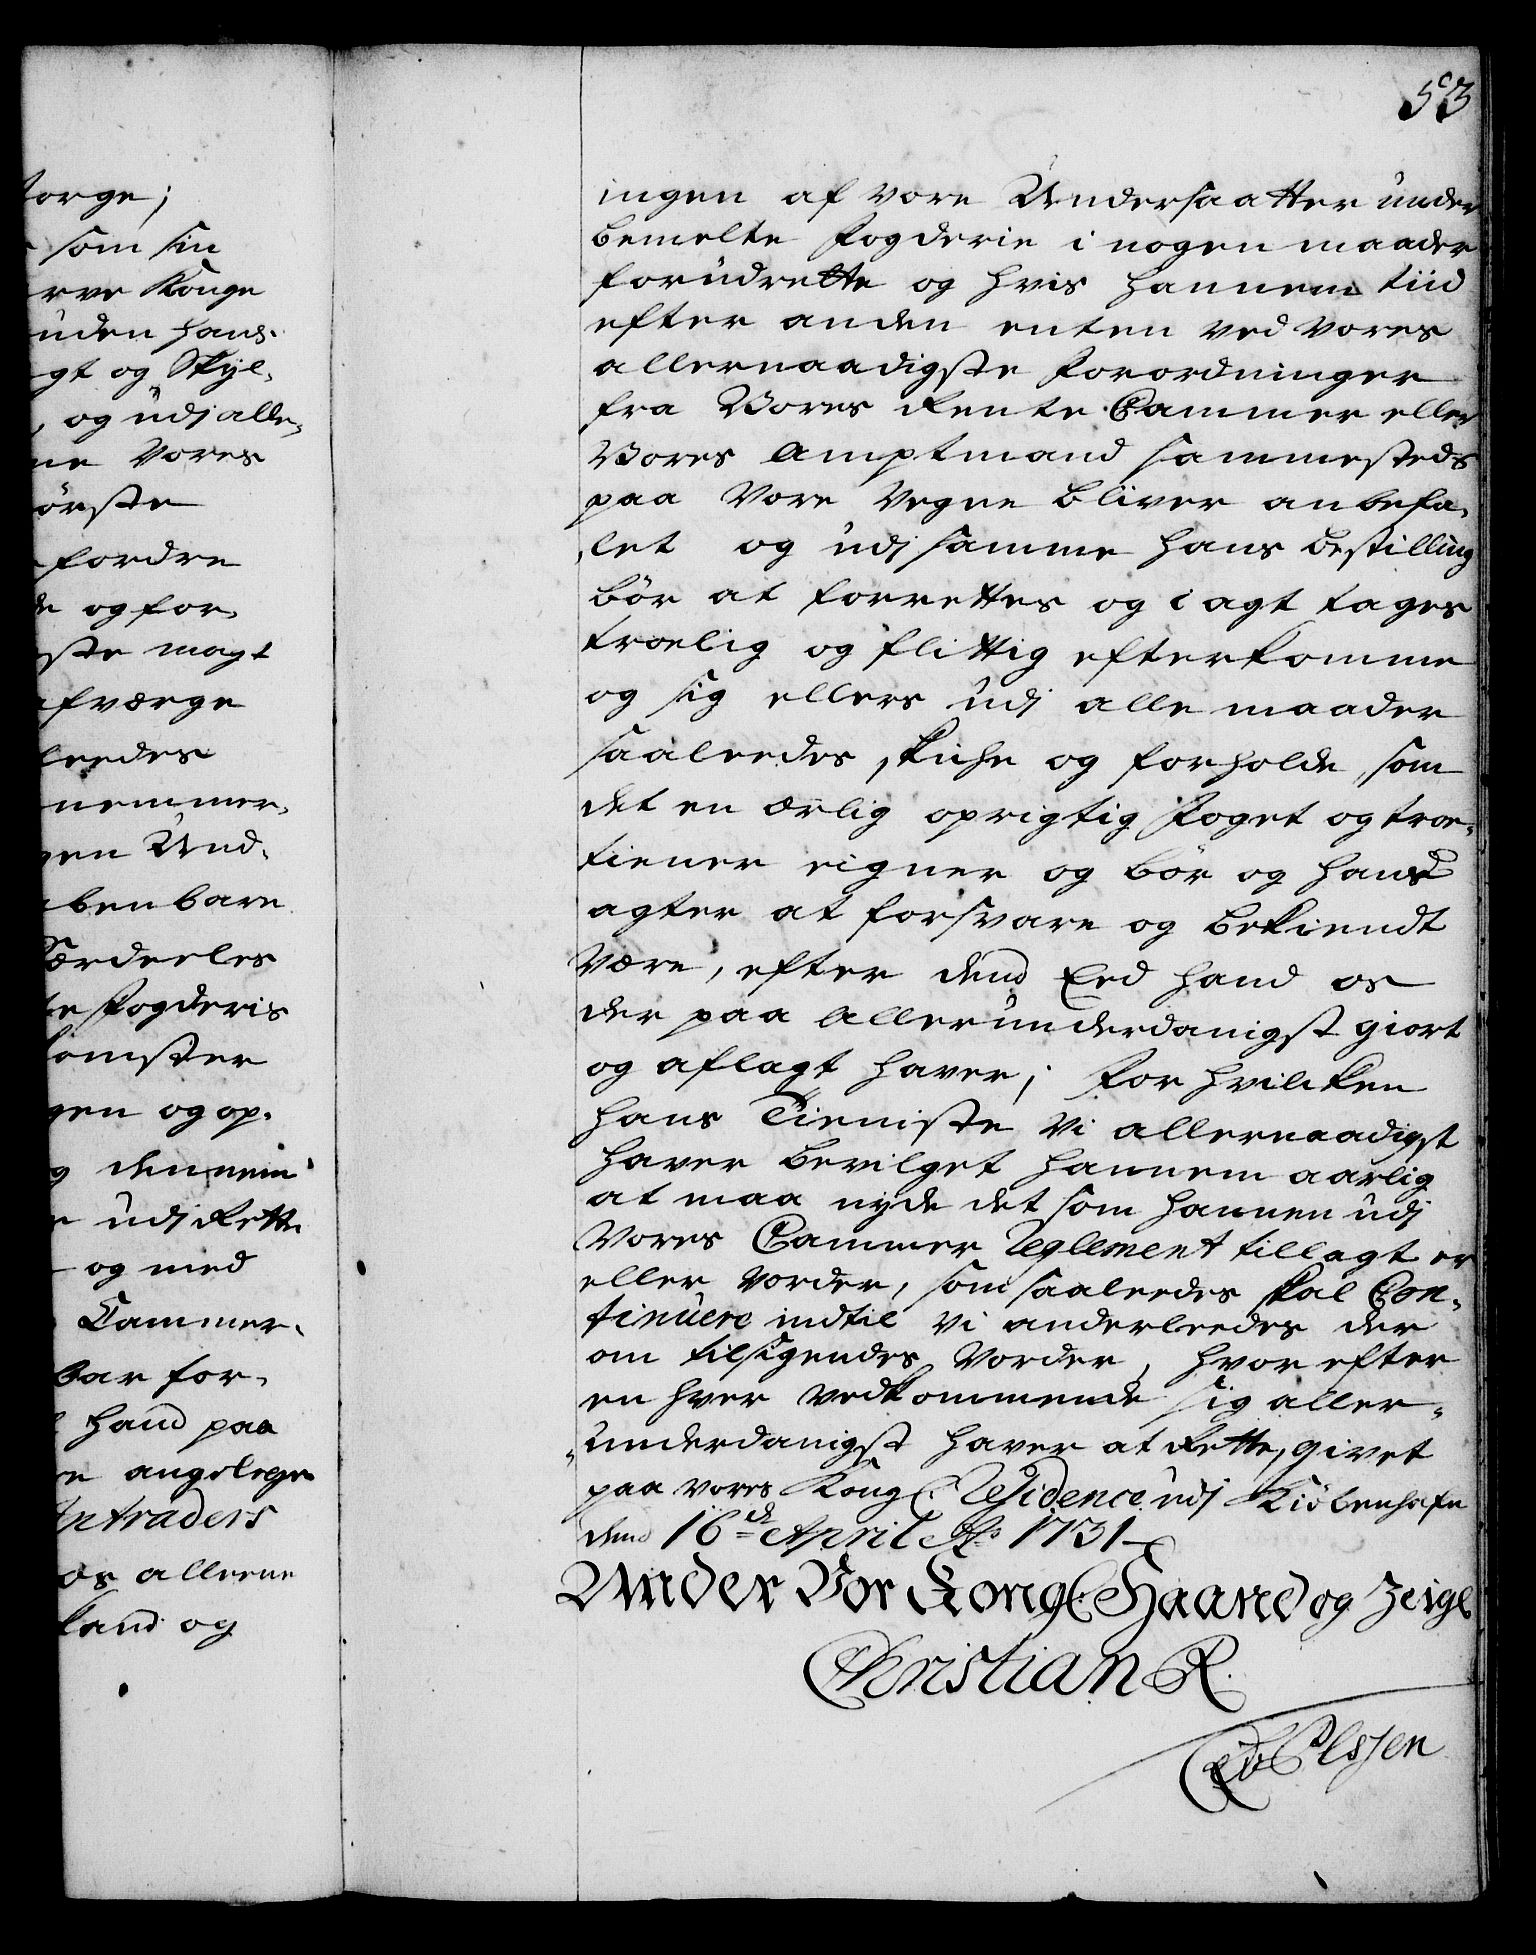 53
torge;
som sin
rve Konge
uden hans
gt og Skyl„
, og udj alle„
ne Vores
örste
fordre
de og for„
ste magt
afværge
leedes
nemmer„
gen Und„
benbare
Særdeeles
te Fogderis
komster
gen og op„
g dennem
udj Rette
og med
Cammer„
bar for„
hand paa
re angelegen
Intraders
os allerne
kand og
ingen af vore Undersaatter under
bemelte Fogderie i nogen maader
forudrette og hvis hannem tiid
efter anden enten ved Vores
allernaadigste Forordninger
fra Vores Rente Cammer eller
Vores Amptmand sammesteds
paa Vore Vegne bliver anbefa„
„let og udj samme hans bestilling
bör at forrettes og i agt tages
troelig og flittig efterkomme
og sig ellers udj alle maader
saaleedes skiche og forholde, som
det en ærlig oprigtig Foget og troe„
tiener eigner og bör og hand
agter at forsvare og bekiendt
Være, efter dend Eed hand os
der paa allerunderdanigst giort
og aflagt haver; For hvilcken
hans Tieniste Vi allernaadigst
haver bevilget hannem aarlig
at maa nyde det som hannem udj
Vores Cammer Reglement tillagt er
eller Vorder, som saaleedes skal Con„
tinuere indtil Vi anderleedes der
om tilsigendes Vorder, hvor efter
en hver vedkommende sig aller„
„underdanigst haver at Rette, givet
paa vores Kongl. Residence udj Kiöbenhafn
dend 16de April Ao 1731
Under Vor Kongl. Haand og Zeigl
Christian R.